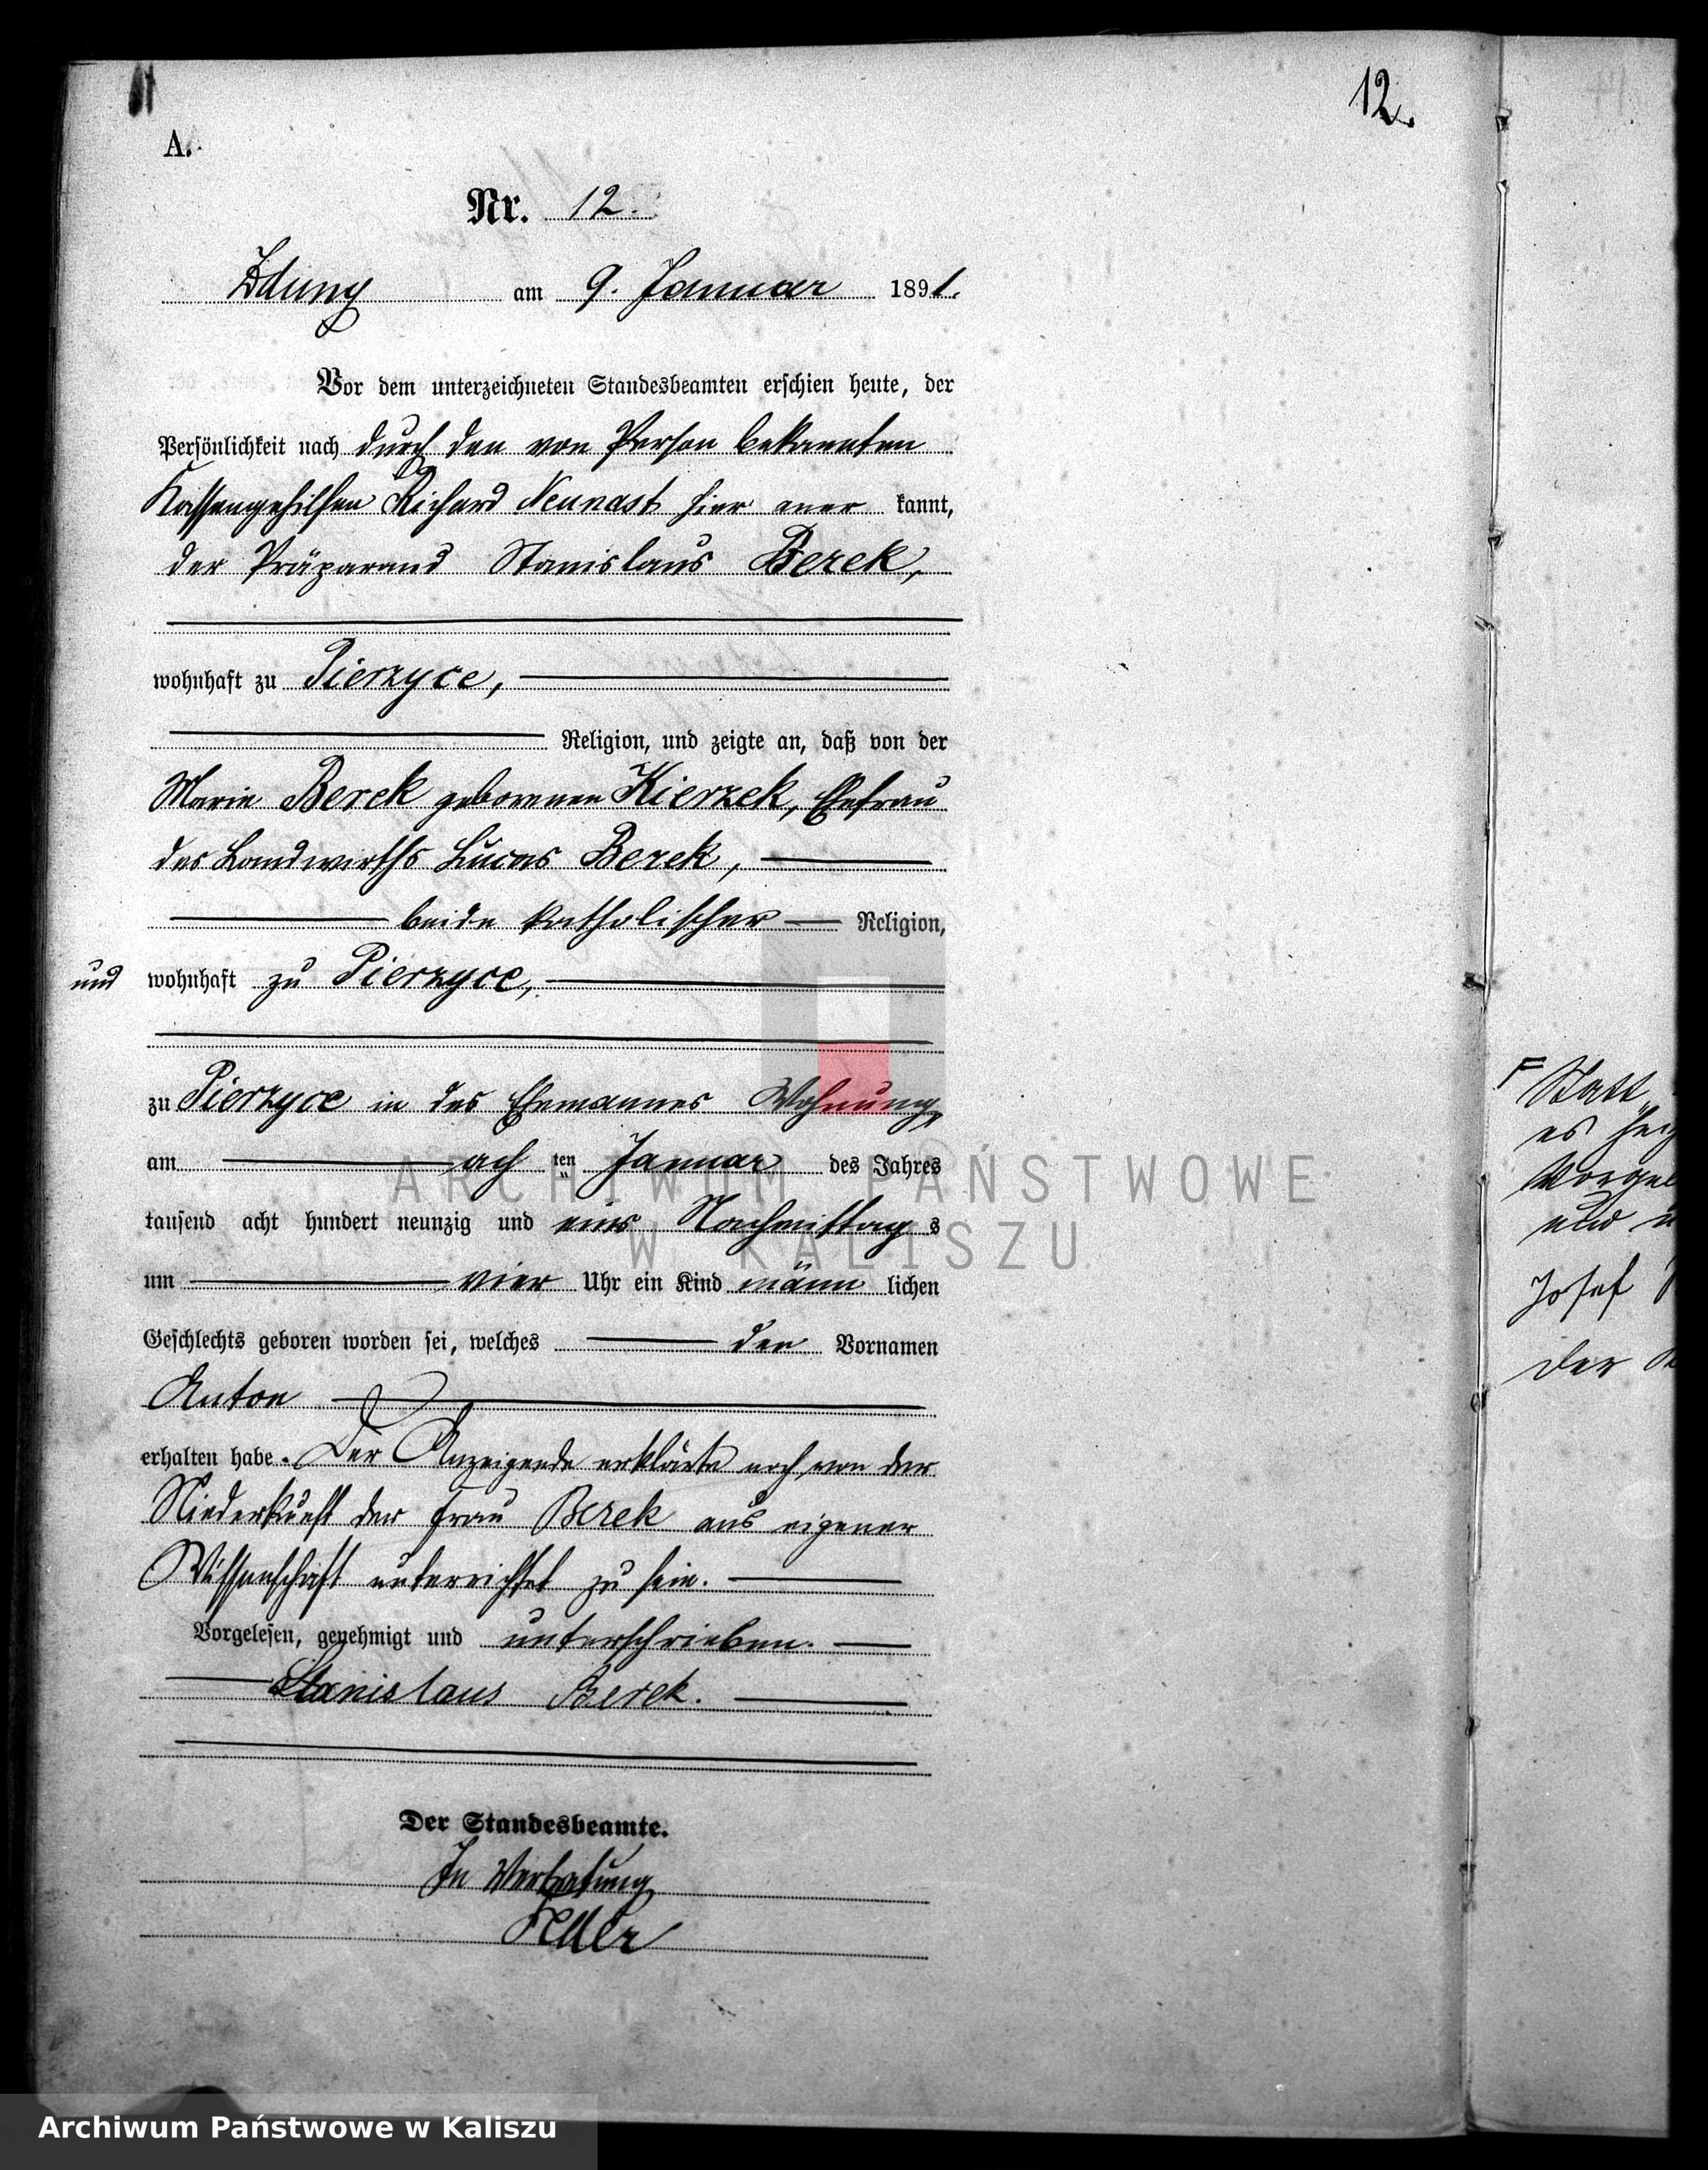 12.
A.
Nr. 12.
Zduny am 9. Januar 1891.
Vor dem unterzeichneten Standesbeamten erschien heute, der
Persönlichkeit nach durch den von Person bekannten
Kassengehilfen Richard Neunast hier aner kannt,
der Präparand Stanislaus Berek,
wohnhaft zu Pierzyce,
Religion, und zeigte an, daß von der
Marie Berek geborenen Kierzek, Ehefrau
des Landwirths Lucas Berek,
beide katholischer Religion,
und wohnhaft zu Pierzyce,
zu Pierzyce in des Ehemannes Wohnung,
am ach ten Januar des Jahres
tausend acht hundert neunzig und eins Nachmittag s
um vier Uhr ein Kind männ lichen
Geschlechts geboren worden sei, welches den Vornamen
Anton
erhalten habe. Der Anzeigende erklärte noch, von der
Niederkunft der Frau Berek aus eigener
Wissenschaft unterrichtet zu sein.
Vorgelesen, genehmigt und unterschrieben.
Stanislaus Berek.
Der Standesbeamte.
In Vertretung
ARCHIWUM PAŃSTWOWE
W KALISZU
F Statt
es
und
Josef
Der
Archiwum Państwowe w Kaliszu